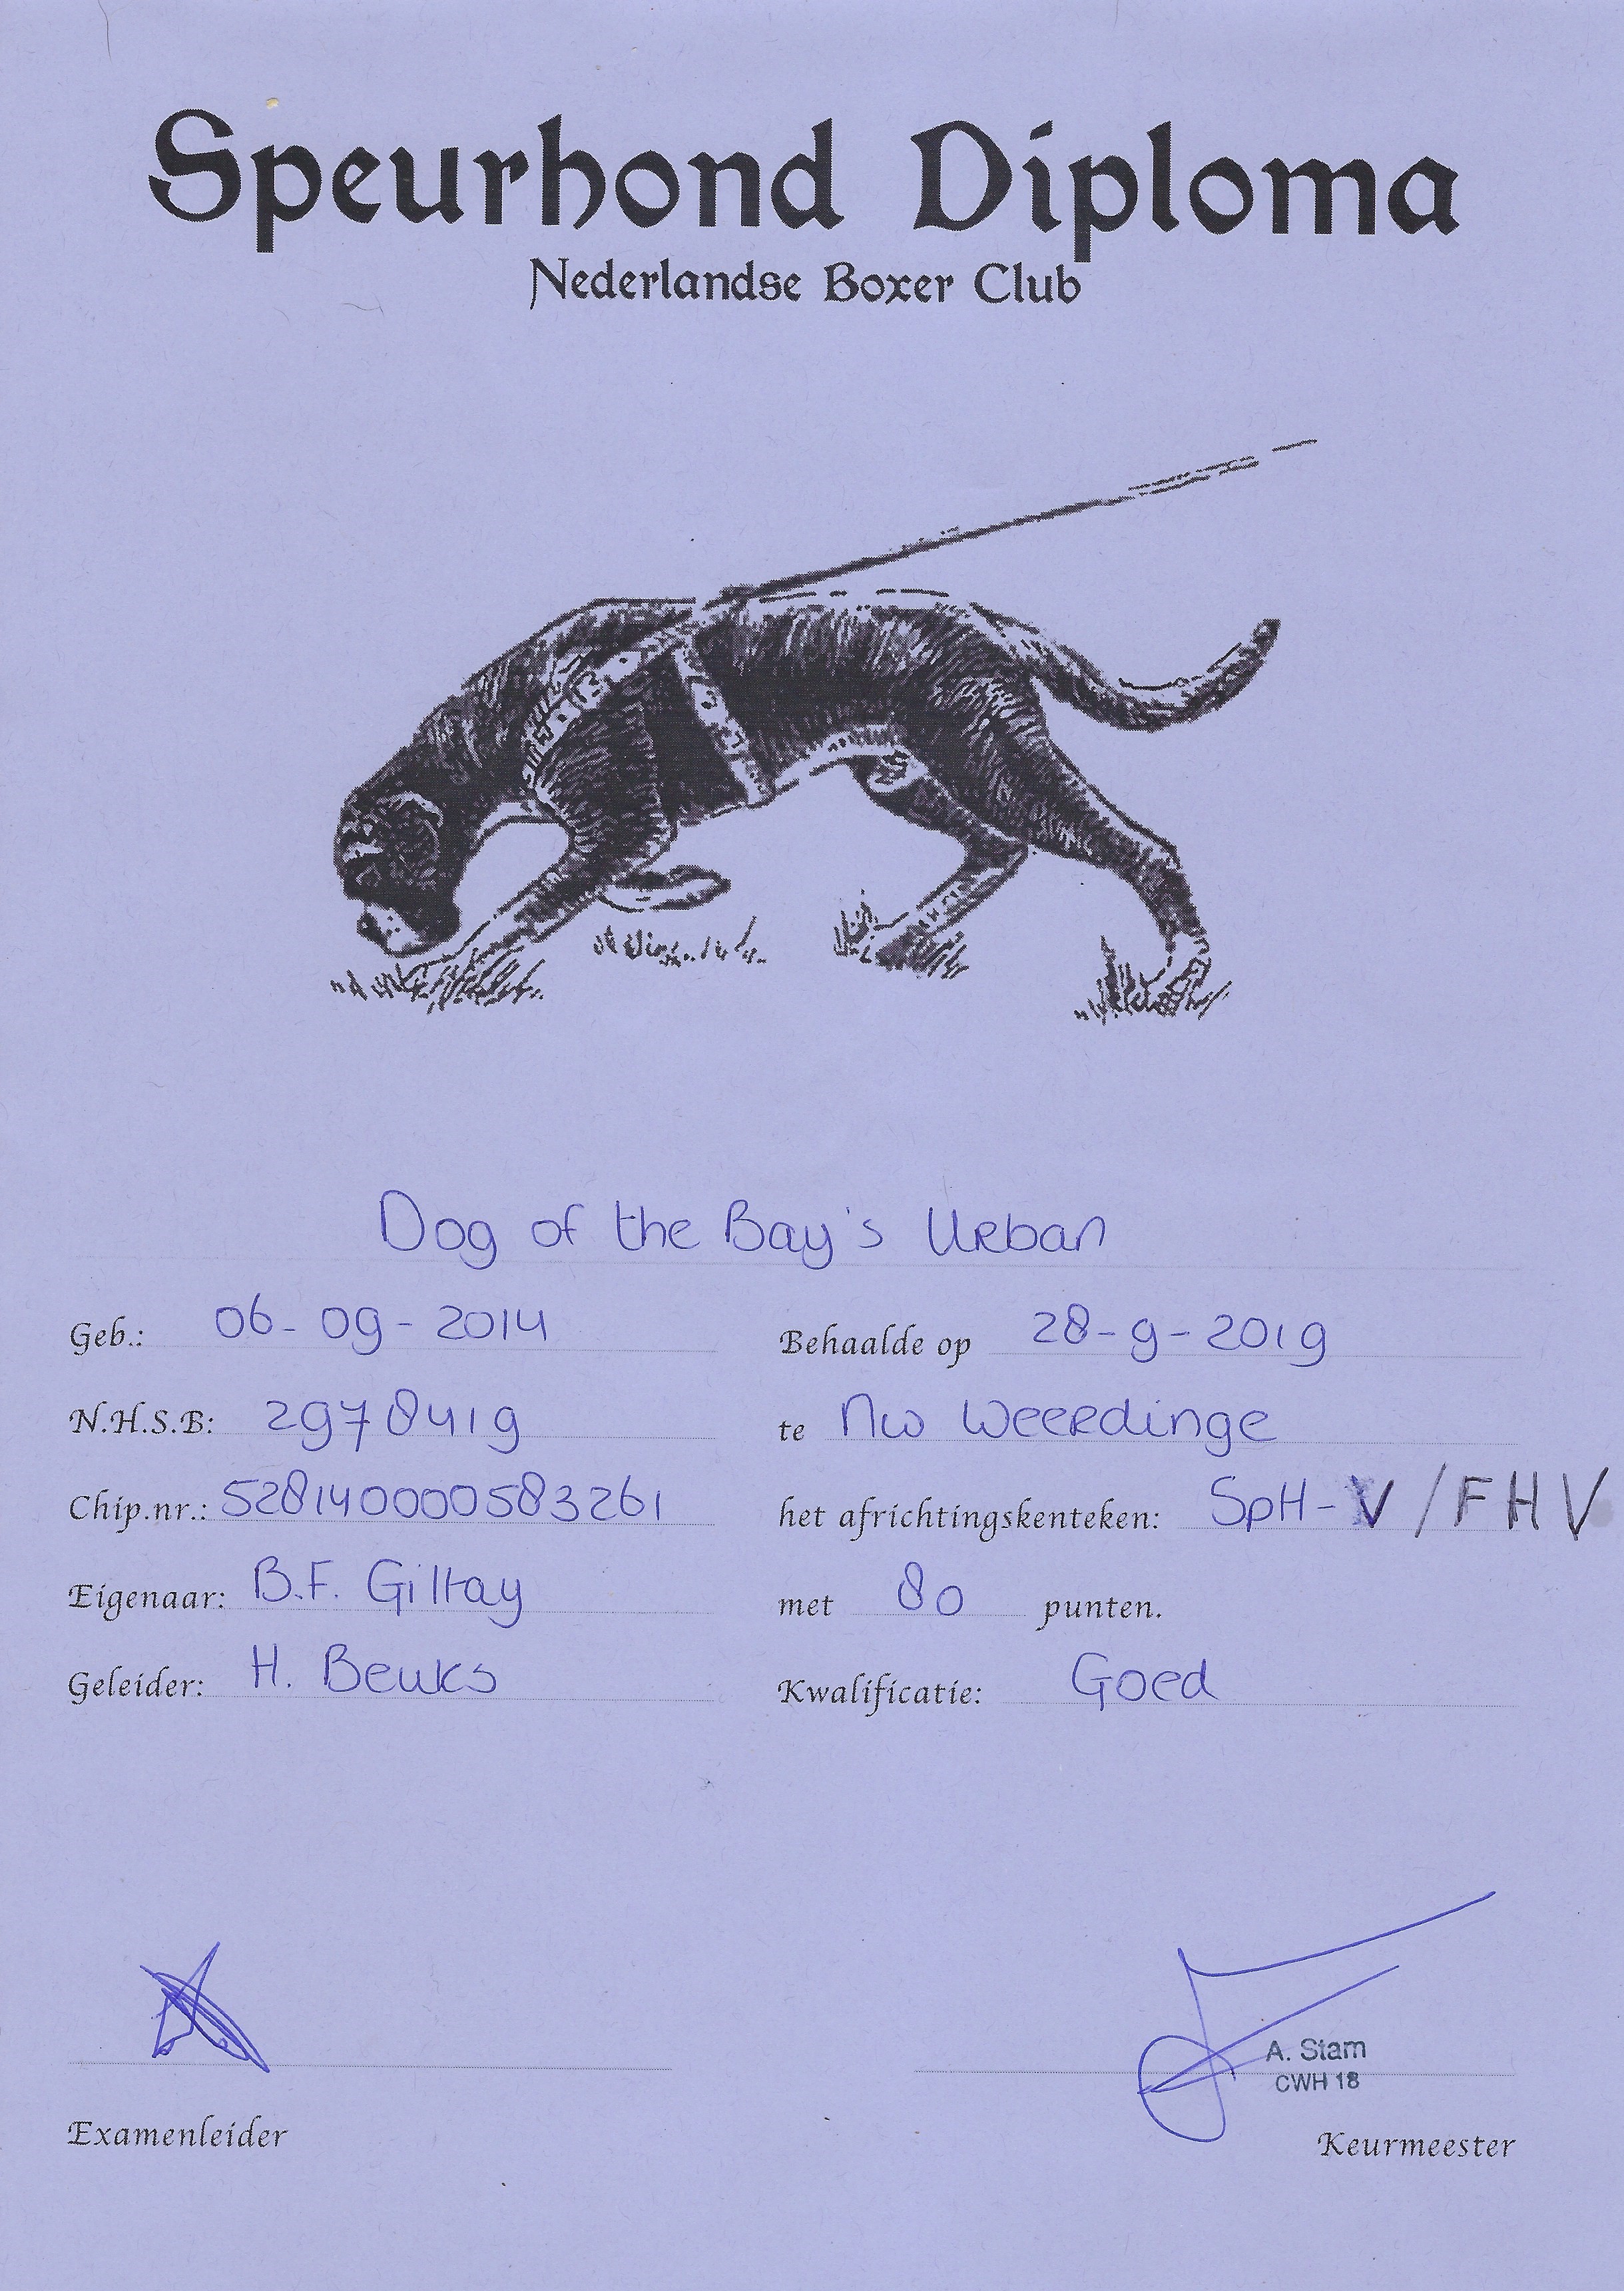 Speurhond Diploma
Nederlandse Boxer Club
Dog of the Bay's Urban
Geb.: 06-09-2014
Behaalde op 28-9-2019
N.H.S.B: 2978419
te Nw Weerdinge
Chip.nr.: 528140000583261
het africhtingskenteken: SpH-V/FHV
Eigenaar: B.F. Giltay
met 80 punten.
Geleider: H. Beuks
Kwalificatie: Goed
A. Stam
CWH 18
Examenleider
Keurmeester